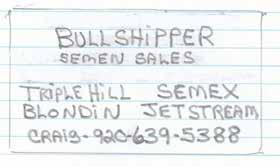 BULLSHIPPER
SEMEN SALES
TRIPLE HILL SEMEX
BLONDIN JETSTREAM
CRAIG-920-639-5388